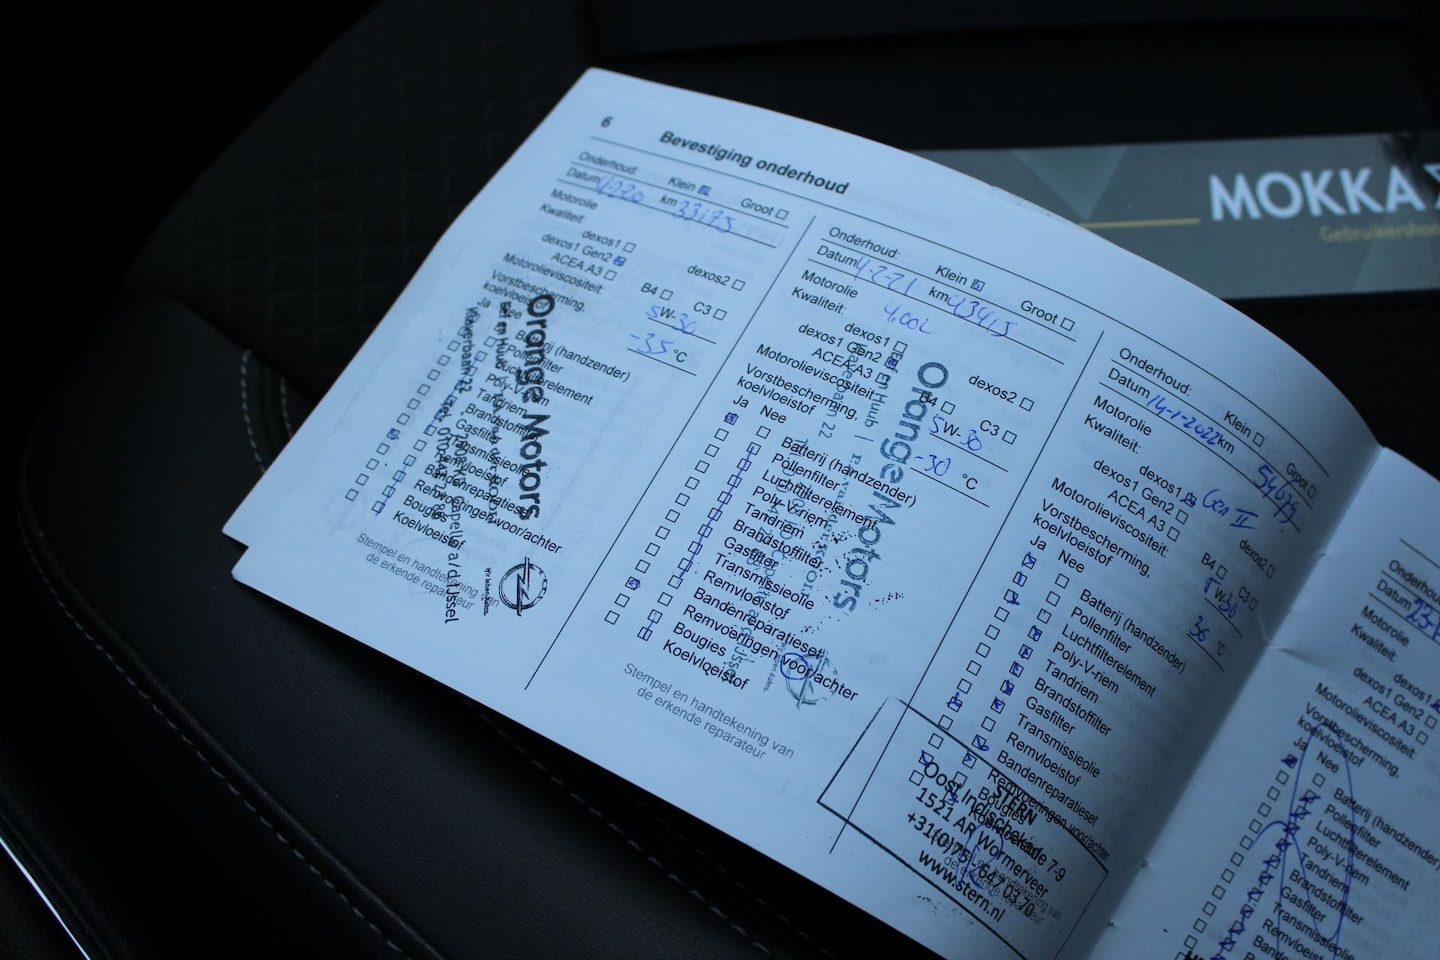 6
Bevestiging onderhoud
Onderhoud: Klein Groot
Datum km 33175
Motorolie
Kwaliteit:
dexos1 dexos2
dexos1 Gen2
ACEA A3 B4 C3
Motorolieviscositeit: 5W-30
Vorstbescherming,
koelvloeistof -35 °C
Ja Nee
Batterij (handzender)
Pollenfilter
Luchtfilterelement
Poly-V-riem
Tandriem
Brandstoffilter
Gasfilter
Transmissieolie
Remvloeistof
Bandenreparatieset
Remvoeringen voor/achter
Bougies
Koelvloeistof
Stempel en handtekening van
de erkende reparateur
Orange Motors
Wir leben Autos.
Onderhoud: Klein Groot
Datum 4-2-21 km 43415
Motorolie 4,00L
Kwaliteit:
dexos1 dexos2
dexos1 Gen2
ACEA A3 B4 C3
Motorolieviscositeit: 5W-30
Vorstbescherming,
koelvloeistof -30 °C
Ja Nee
Batterij (handzender)
Pollenfilter
Luchtfilterelement
Poly-V-riem
Tandriem
Brandstoffilter
Gasfilter
Transmissieolie
Remvloeistof
Bandenreparatieset
Remvoeringen voor/achter
Bougies
Koelvloeistof
Stempel en handtekening van
de erkende reparateur
Orange Motors
Onderhoud: Klein Groot
Datum 14-1-2022 km
Motorolie
Kwaliteit:
dexos1 Gen II dexos2
dexos1 Gen2
ACEA A3 B4 C3
Motorolieviscositeit: W-30
Vorstbescherming,
koelvloeistof 36 °C
Ja Nee
Batterij (handzender)
Pollenfilter
Luchtfilterelement
Poly-V-riem
Tandriem
Brandstoffilter
Gasfilter
Transmissieolie
Remvloeistof
Bandenreparatieset
Remvoeringen voor/achter
Bougies
STERN
Oost Indischekade 7-9
1521 AR Wormerveer
+31(0)75-647 03 70
www.stern.nl
Onderhoud:
Datum
Motorolie
Kwaliteit:
dexos1
dexos1 Gen2
ACEA A3
Motorolieviscositeit:
Vorstbescherming,
koelvloeistof
Ja Nee
Batterij (handzender)
Pollenfilter
Luchtfilterelement
Poly-V-riem
Tandriem
Brandstoffilter
Gasfilter
Transmissieolie
Remvloeistof
MOKKA